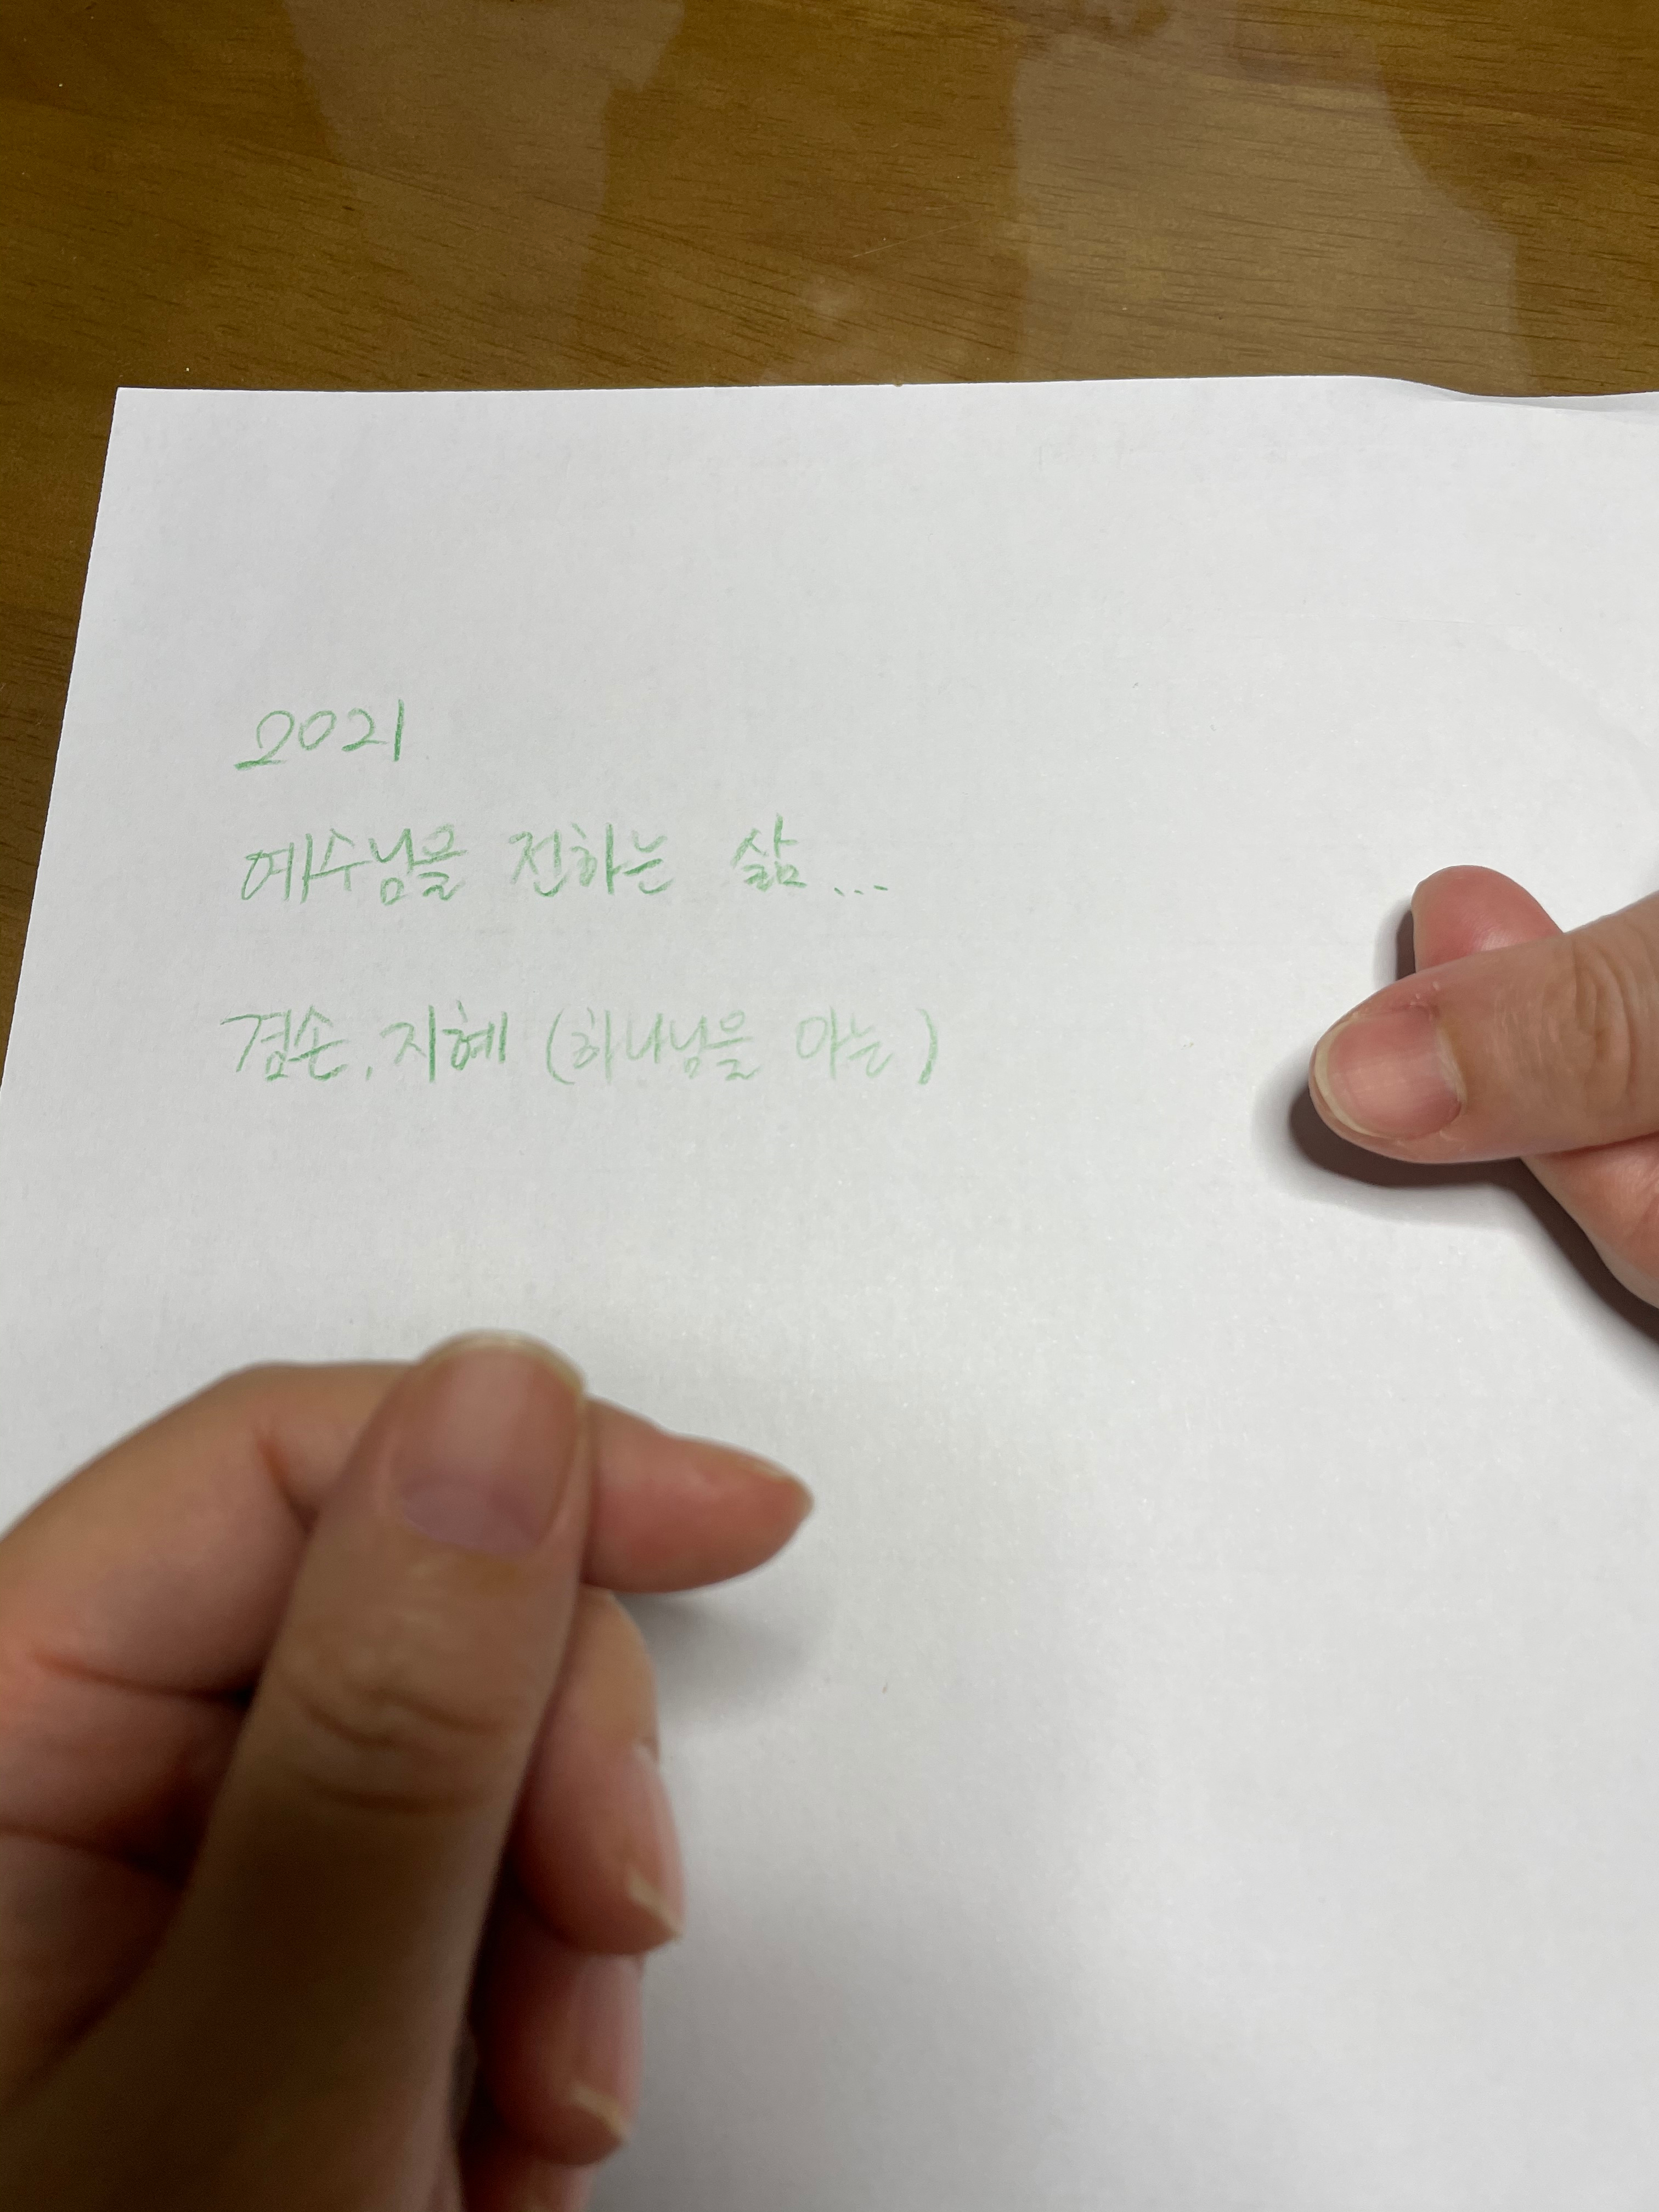 2021
예수님을 전하는 삶...
겸손, 지혜 (하나님을 아는)